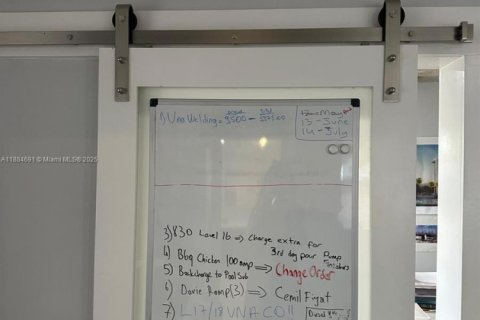 A11884691 © Miami MLS® 2025
1) Una Welding = 9500 -
12 - May
13 - June
14 - July
3) 830 Level 16 => Charge extra for
3rd day pour Pump
4) Bbq Chicken 100 amp => Change Order
5) Backcharge to Pool Sub
6) Davie Ramp (3) => Cemil Fiyat
7) L17/18 UNA CO11
Diesel